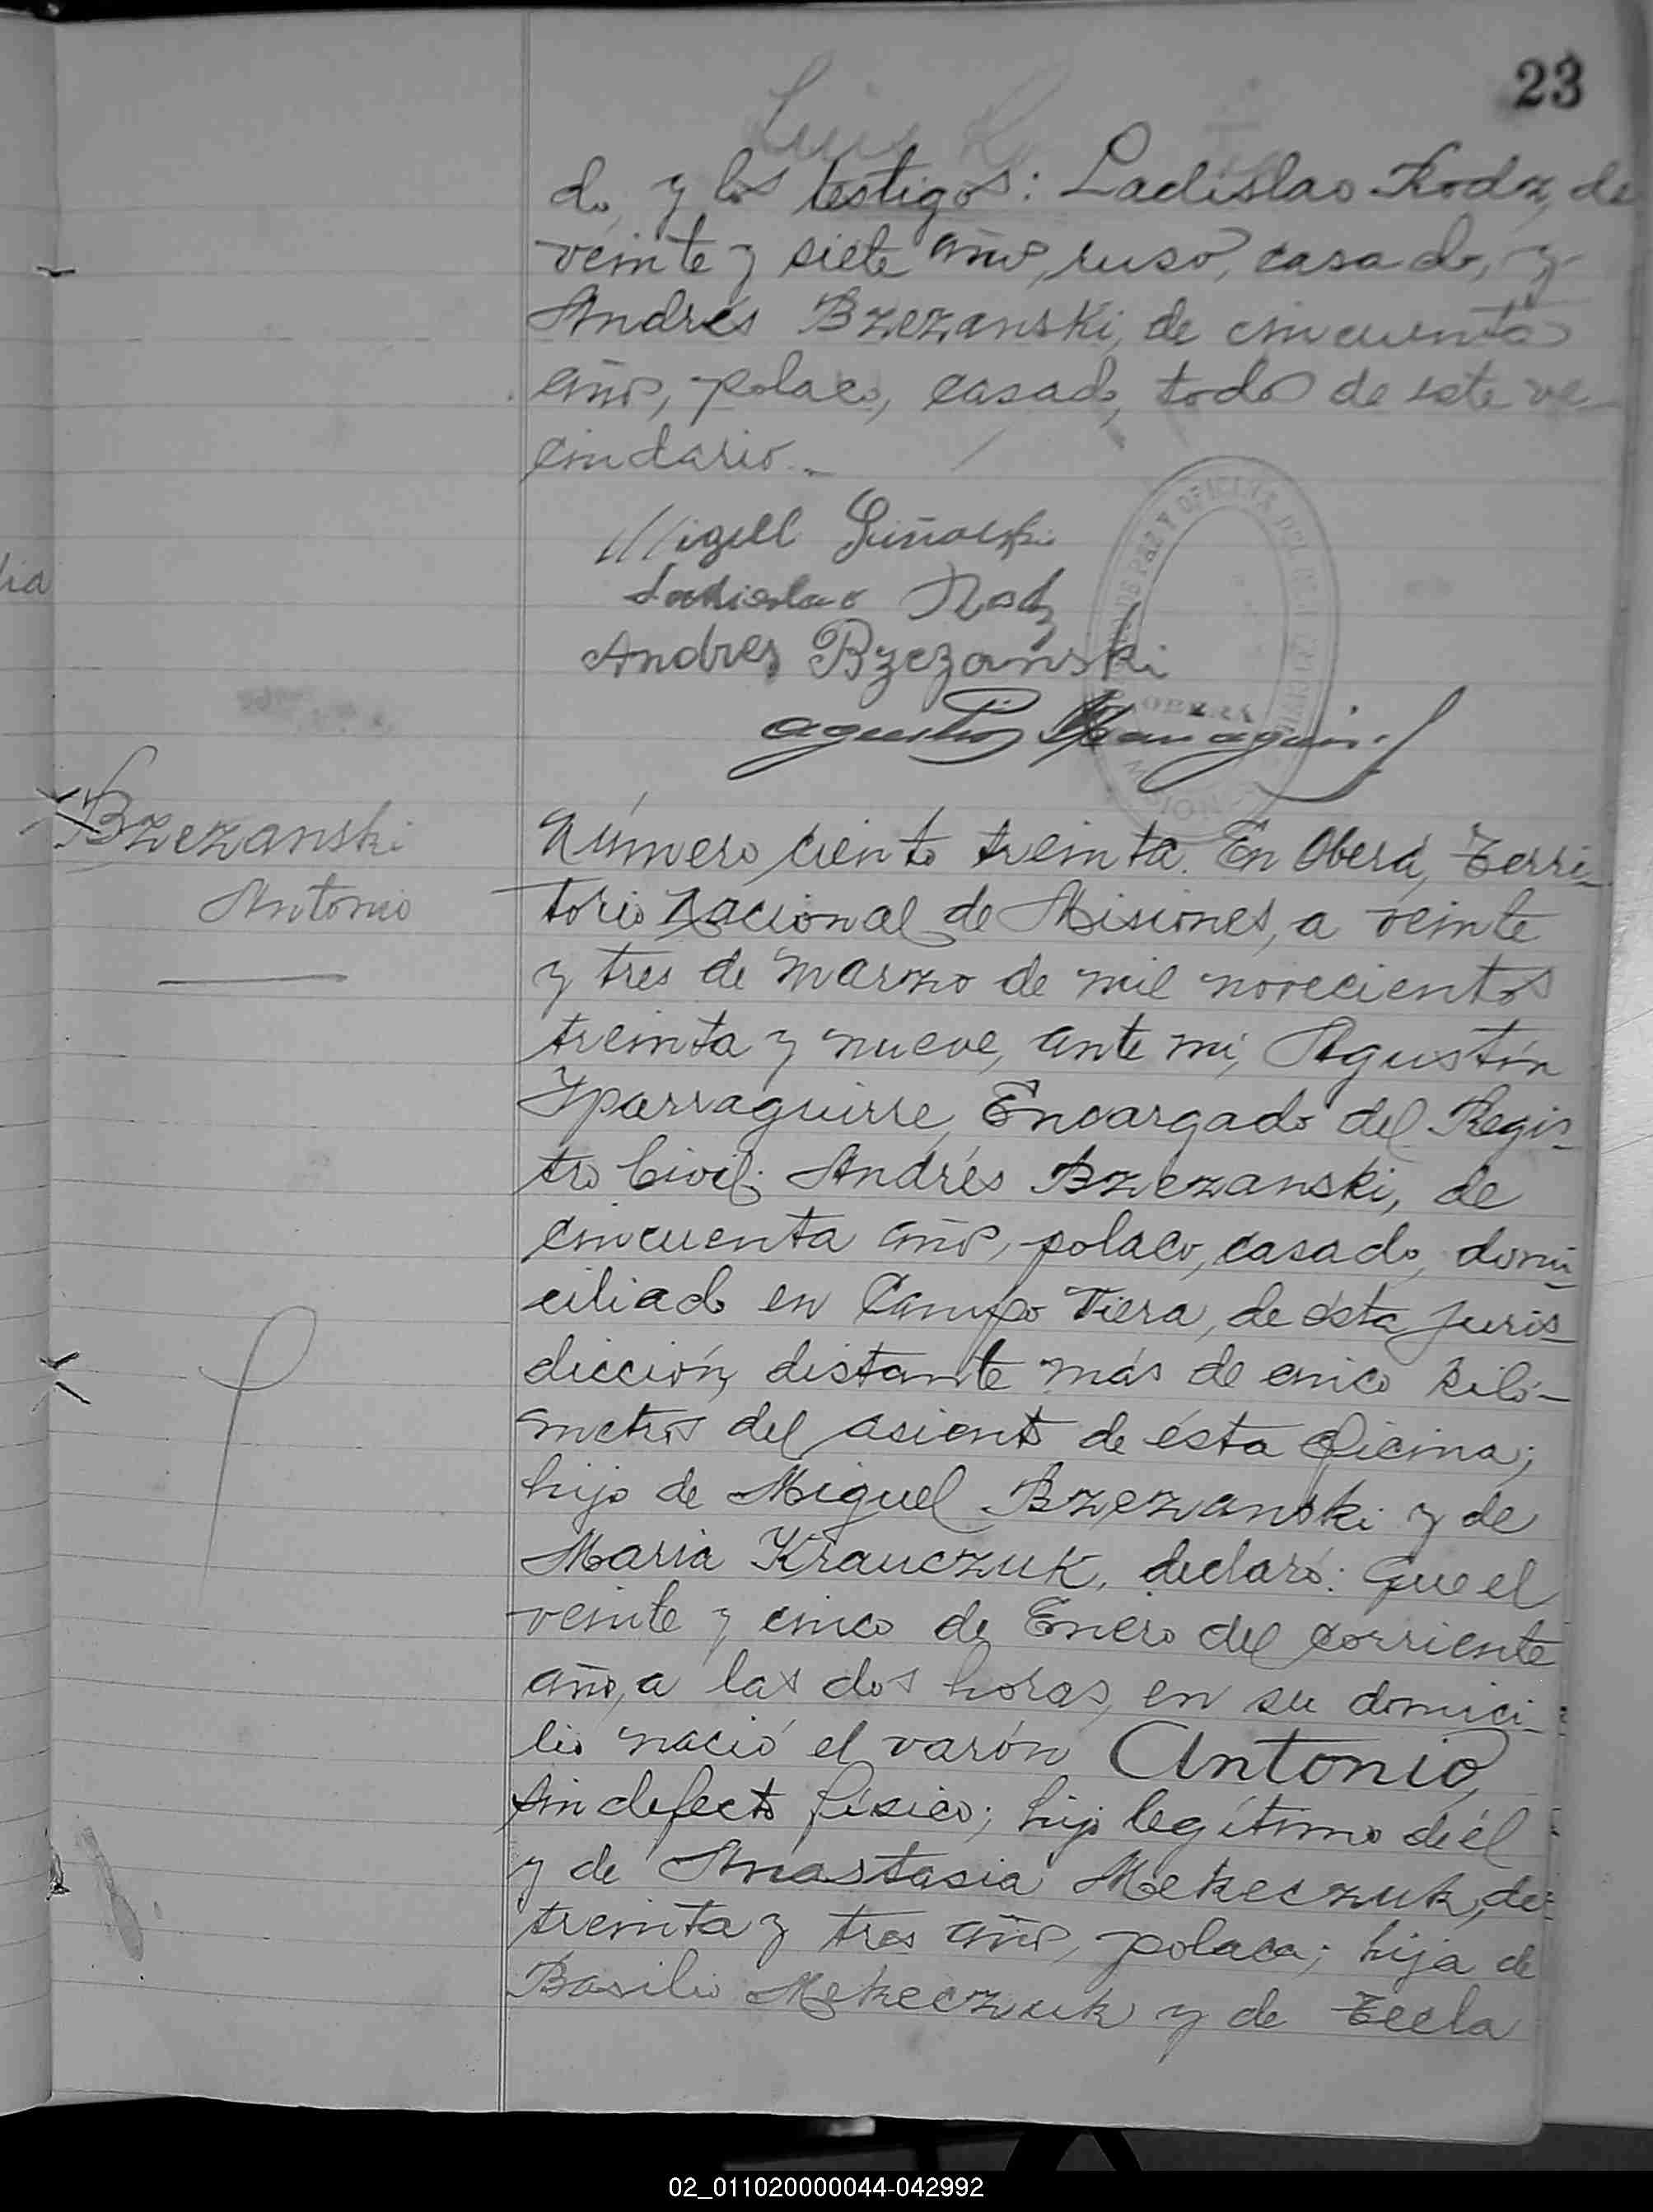 23
do, y los testigos: Ladislao Rodz, de
veinte y siete años, ruso, casado, y
Andrés Bzezanski, de cincuenta
años, polaco, casado, todos de este ve-
cindario.-
Miguel
Ladislao Rodz
Andres Bzezanski
OBERÁ
Bzezanski
Antonio
Número ciento treinta. En Oberá, Terri-
torio Nacional de Misiones, a veinte
y tres de marzo de mil novecientos
treinta y nueve, ante mí, Agustín
Yparraguirre, Encargado del Regis-
tro Civil; Andrés Bzezanski, de
cincuenta años, polaco, casado, domi-
ciliado en Campo Viera, de ésta juris-
dicción, distante más de cinco kiló-
metros del asiento de ésta Oficina;
hijo de Miguel Bzezanski y de
Maria Krauczuk, declaró: Que el
veinte y cinco de Enero del corriente
año, a las dos horas, en su domici-
lio nació el varón Antonio,
sin defecto físico; hijo legítimo de él
y de Anastasia Mekeczuk, de
treinta y tres años, polaca; hija de
Basilio Mekeczuk y de Tecla
02_011020000044-042992